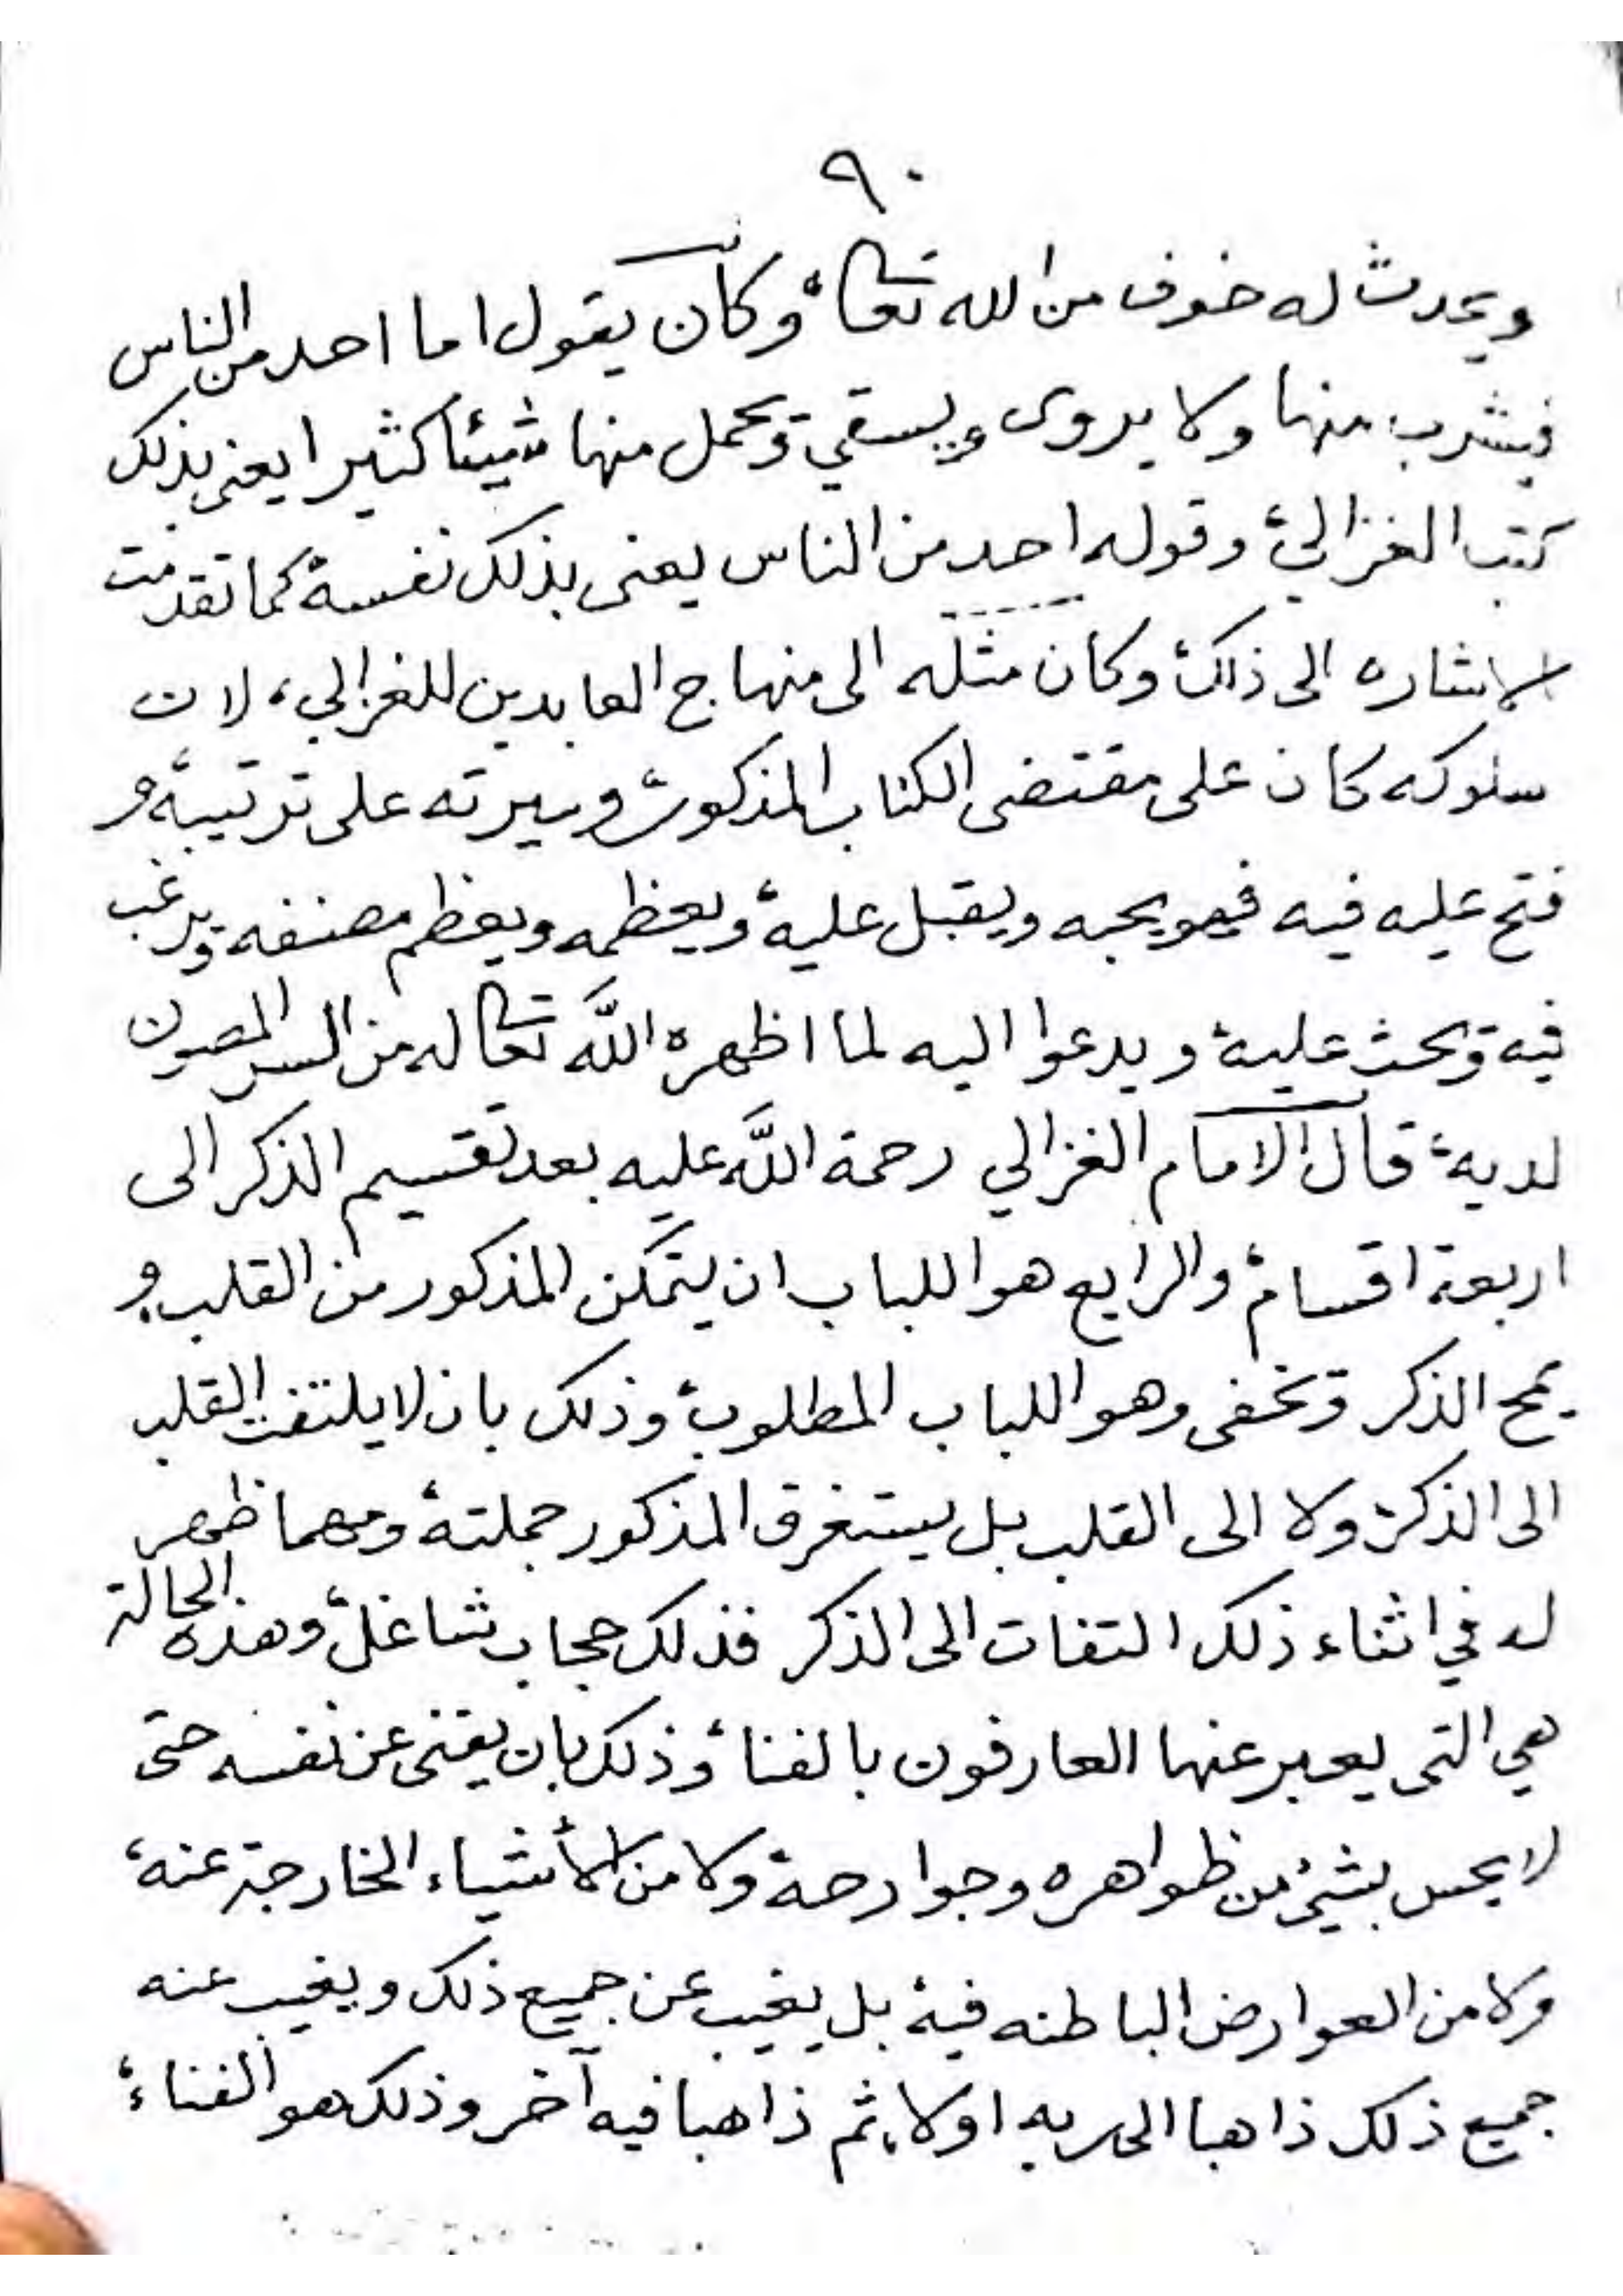 ٩٠
ويحدث له خوف من الله تعالى، وكان يقول اما احد من الناس
فيشرب منها ولا يروى ويسقي ويحمل منها شيئا كثيرا يعني بذلك
كتب الغزالي، وقوله احد من الناس يعني بذلك نفسه، كما تقدمت
الاشاره الى ذلك، وكان مثله الى منهاج العابدين للغزالي، لان
سلوكه كان على مقتضى الكتاب المذكور، وسيرته على ترتيبه، و
فتح عليه فيه فهو يحبه ويقبل عليه، ويعظمه ويعظم مصنفه ويرغب
فيه ويحث عليه، ويدعوا اليه لما اظهره اللَّه تعالى له من السر المصون
لديه، قال الامام الغزالي رحمة اللَّه عليه بعد تقسيم الذكر الى
اربعة اقسام، والرابع هو اللباب ان يتمكن المذكور من القلب، و
يمح الذكر ويخفى وهو اللباب المطلوب، وذلك بان لا يلتفت القلب
الى الذكر، ولا الى القلب بل يستغرق المذكور جملته، ومهما ظهر
له في اثناء ذلك التفات الى الذكر فذلك حجاب شاغل، وهذه الحالة
هي التي يعبر عنها العارفون بالفناء، وذلك بان يفنى عن نفسه حتى
لا يحس بشيء من ظواهره وجوارحه، ولا من الأشياء الخارجة عنه،
ولا من العوارض الباطنه فيه، بل يغيب عن جميع ذلك ويغيب عنه
جميع ذلك ذاهبا الى ربه اولا، ثم ذاهبا فيه آخر وذلك هو الفناء،